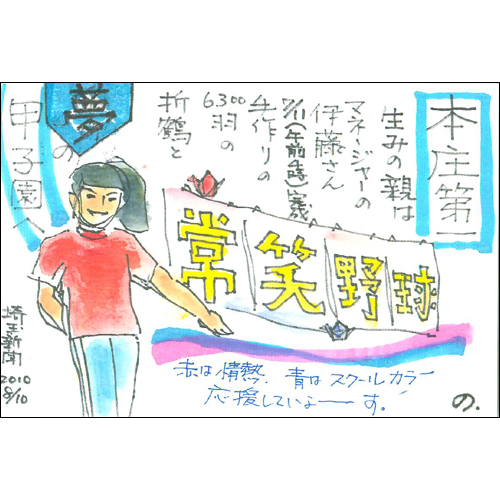 本庄第一
生みの親は
マネージャーの
伊藤さん
手作りの
6300羽の
折鶴と
夢
の
甲子園へ
常笑野球
赤は情熱、青はスクールカラー
応援していよーーす。
埼玉新聞
2010
8/10
の.